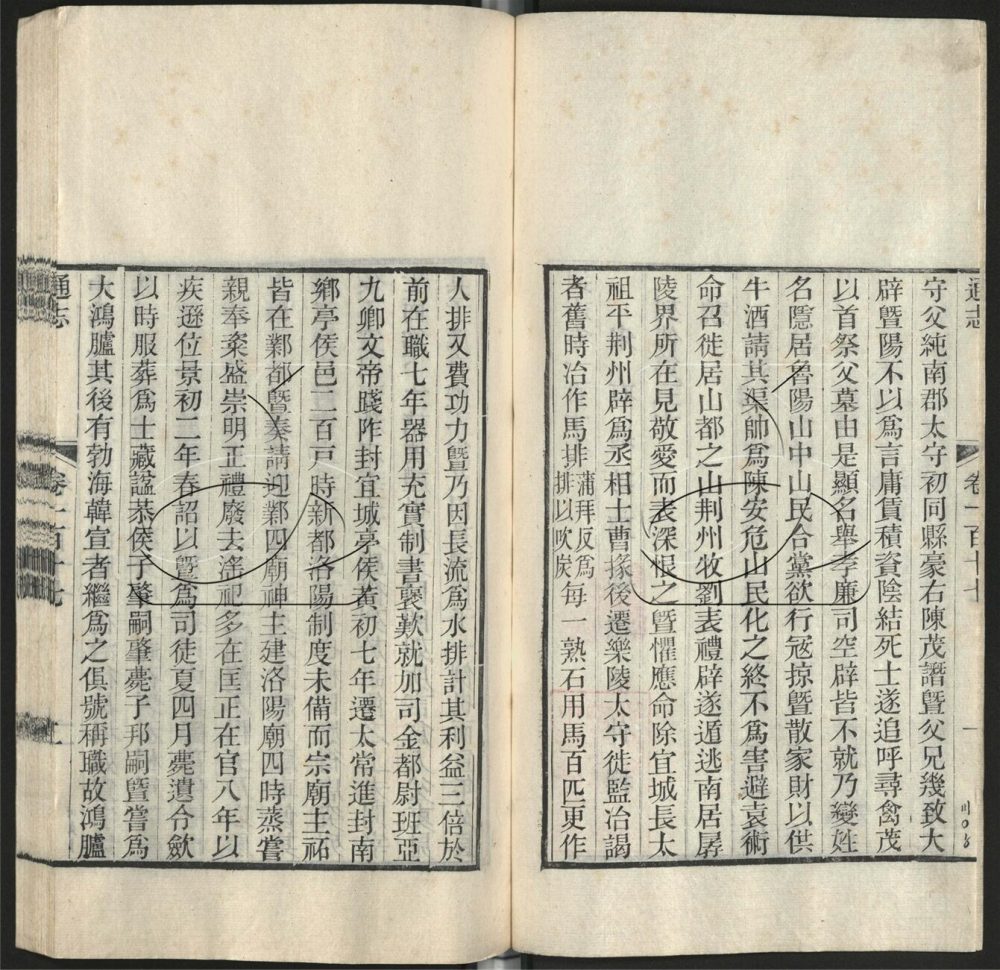 通志
卷一百十七
一
守父純南郡太守初同縣豪右陳茂譖暨父兄幾致大
辟暨陽不以爲言庸賃積資陰結死士遂追呼尋禽茂
以首祭父墓由是顯名舉孝廉司空辟皆不就乃變姓
名隱居魯陽山中山民合黨欲行冦掠暨散家財以供
牛酒請其渠帥爲陳安危山民化之終不爲害避袁術
命召徙居山都之山荆州牧劉表禮辟遂遁逃南居孱
陵界所在見敬愛而表深恨之暨懼應命除宜城長太
祖平荆州辟爲丞相士曹掾後遷樂陵太守徙監冶謁
者舊時冶作馬排蒲拜反爲排以吹炭每一熟石用馬百匹更作
人排又費功力暨乃因長流爲水排計其利益三倍於
前在職七年器用充實制書襃歎就加司金都尉班亞
九卿文帝踐阼封宜城亭侯黃初七年遷太常進封南
鄉亭侯邑二百戸時新都洛陽制度未備而宗廟主祏
皆在鄴都暨奏請迎鄴四廟神主建洛陽廟四時蒸嘗
親奉粢盛崇明正禮廢去滛祀多在匡正在官八年以
疾遜位景初二年春詔以暨爲司徒夏四月薨遺令斂
以時服葬爲土藏諡恭侯子肇嗣肇薨子邦嗣暨嘗爲
大鴻臚其後有勃海韓宣者繼爲之俱號稱職故鴻臚
通志
卷一百十七